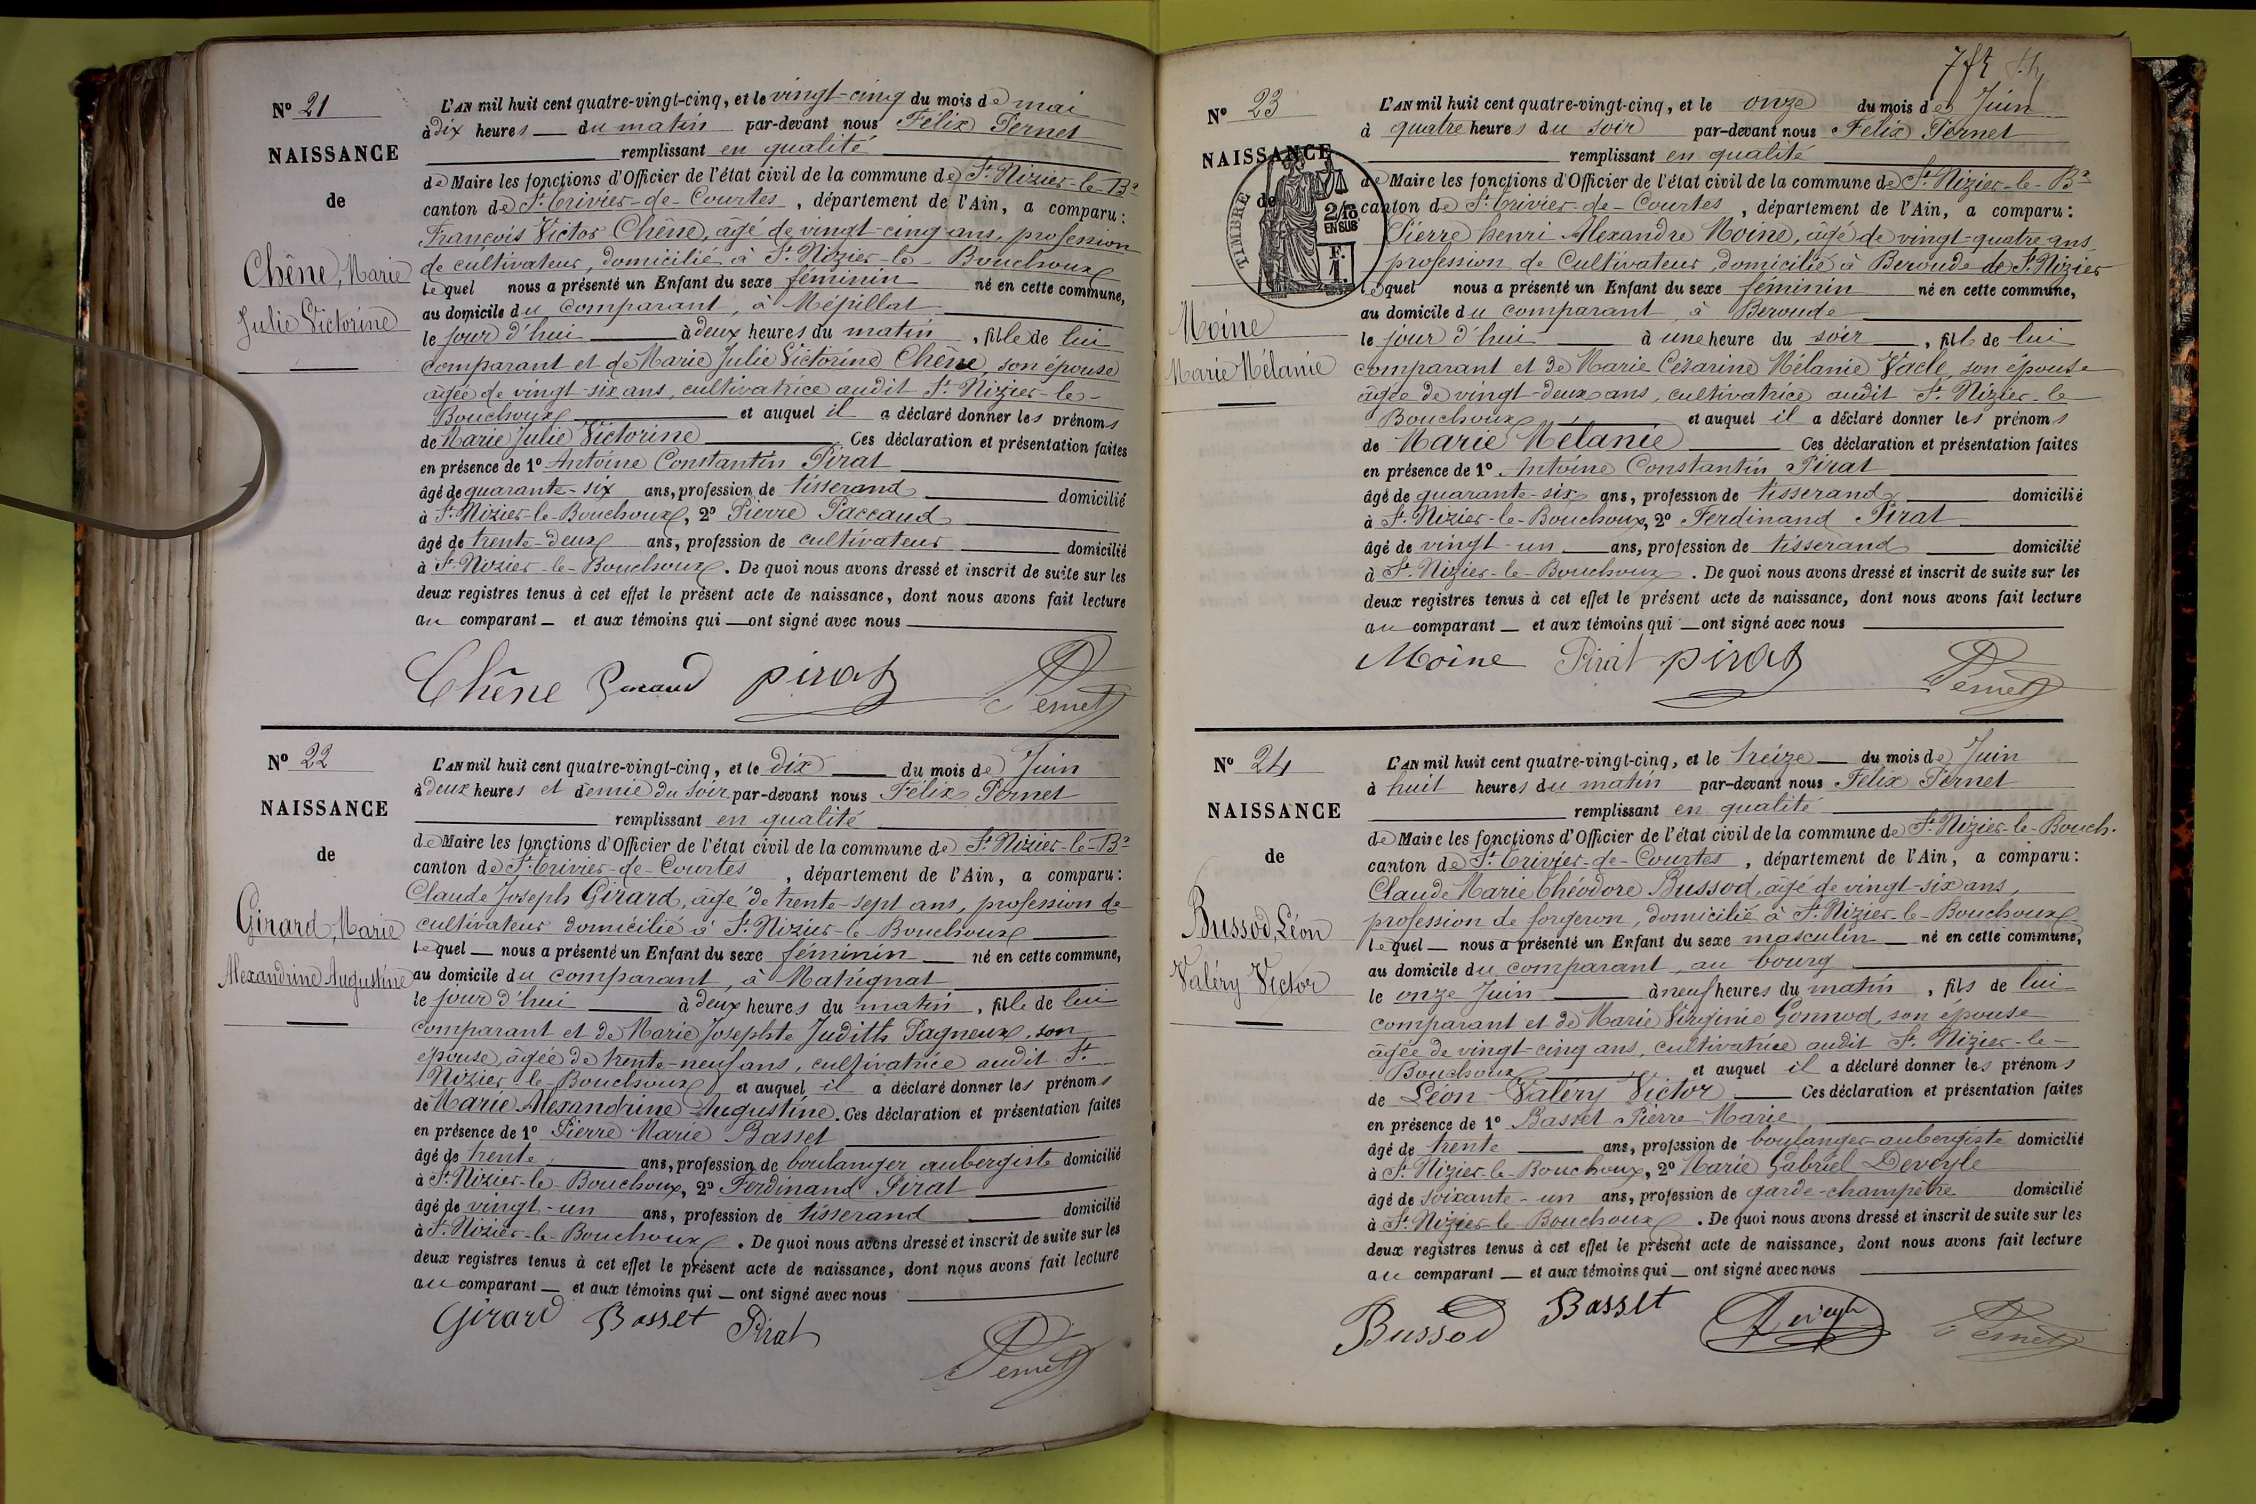 N° 21
NAISSANCE
de
Chêne, Marie
Julie Victorine
L'AN mil huit cent quatre-vingt-cinq, et le vingt-cinq du mois de mai
à dix heures du matin par-devant nous Félix Pernet
remplissant en qualité
de Maire les fonctions d'Officier de l'état civil de la commune de St Nizier-le-Bx
canton de St Trivier-de-Courtes, département de l'Ain, a comparu :
François Victor Chêne, âgé de vingt-cinq ans, profession
de cultivateur, domicilié à St Nizier-le-Bouchoux
lequel nous a présenté un Enfant du sexe féminin né en cette commune,
au domicile du comparant, à Mépillat
le jour d'hui à deux heures du matin, fille de lui
comparant et de Marie Julie Victorine Chêne, son épouse
âgée de vingt-six ans, cultivatrice audit St Nizier-le-
Bouchoux et auquel il a déclaré donner les prénoms
de Marie Julie Victorine Ces déclaration et présentation faites
en présence de 1° Antoine Constantin Pirat
âgé de quarante-six ans, profession de tisserand domicilié
à St Nizier-le-Bouchoux, 2° Pierre Paccaud
âgé de trente-deux ans, profession de cultivateur domicilié
à St Nizier-le-Bouchoux. De quoi nous avons dressé et inscrit de suite sur les
deux registres tenus à cet effet le présent acte de naissance, dont nous avons fait lecture
au comparant et aux témoins qui ont signé avec nous
Chêne Pacaud Pirat Pernet
N° 22
NAISSANCE
de
Girard, Marie
Alexandrine Augustine
L'AN mil huit cent quatre-vingt-cinq, et le dix du mois de Juin
à deux heures et demie du soir par-devant nous Félix Pernet
remplissant en qualité
de Maire les fonctions d'Officier de l'état civil de la commune de St Nizier-le-Bx
canton de St Trivier-de-Courtes, département de l'Ain, a comparu :
Claude Joseph Girard, âgé de trente-sept ans, profession de
cultivateur domicilié à St Nizier-le-Bouchoux
lequel nous a présenté un Enfant du sexe féminin né en cette commune,
au domicile du comparant, à Matrignat
le jour d'hui à deux heures du matin, fille de lui
comparant et de Marie Josephte Judith Pagneux, son
épouse, âgée de trente-neuf ans, cultivatrice audit St
Nizier le Bouchoux et auquel il a déclaré donner les prénoms
de Marie Alexandrine Augustine. Ces déclaration et présentation faites
en présence de 1° Pierre Marie Basset
âgé de trente ans, profession de boulanger aubergiste domicilié
à St Nizier-le-Bouchoux, 2° Ferdinand Pirat
âgé de vingt-un ans, profession de tisserand domicilié
à St Nizier-le-Bouchoux. De quoi nous avons dressé et inscrit de suite sur les
deux registres tenus à cet effet le présent acte de naissance, dont nous avons fait lecture
au comparant et aux témoins qui ont signé avec nous
Girard Basset Pirat
Pernet
N° 23
NAISSANCE
de
TIMBRE
2/10 EN SUS
1 F.
Moine
Marie Mélanie
L'AN mil huit cent quatre-vingt-cinq, et le onze du mois de Juin
à quatre heures du soir par-devant nous Félix Pernet
remplissant en qualité
de Maire les fonctions d'Officier de l'état civil de la commune de St Nizier-le-Bx
canton de St Trivier-de-Courtes, département de l'Ain, a comparu :
Pierre henri Alexandre Moine, âgé de vingt-quatre ans
profession de Cultivateur, domicilié à Beroude de St Nizier
lequel nous a présenté un Enfant du sexe féminin né en cette commune,
au domicile du comparant, à Beroude
le jour d'hui à une heure du soir, fille de lui
comparant et de Marie Césarine Mélanie Vacle, son épouse
âgée de vingt-deux ans, cultivatrice audit St Nizier-le-
Bouchoux et auquel il a déclaré donner les prénoms
de Marie Mélanie Ces déclaration et présentation faites
en présence de 1° Antoine Constantin Pirat
âgé de quarante-six ans, profession de tisserand domicilié
à St Nizier-le-Bouchoux, 2° Ferdinand Pirat
âgé de vingt-un ans, profession de tisserand domicilié
à St Nizier-le-Bouchoux. De quoi nous avons dressé et inscrit de suite sur les
deux registres tenus à cet effet le présent acte de naissance, dont nous avons fait lecture
au comparant et aux témoins qui ont signé avec nous
Moine Pirat Pirat Pernet
N° 24
NAISSANCE
de
Bussod, Léon
Valéry Victor
L'AN mil huit cent quatre-vingt-cinq, et le treize du mois de Juin
à huit heures du matin par-devant nous Félix Pernet
remplissant en qualité
de Maire les fonctions d'Officier de l'état civil de la commune de St Nizier-le-Bouch.
canton de St Trivier-de-Courtes, département de l'Ain, a comparu :
Claude Marie Théodore Bussod, âgé de vingt-six ans,
profession de forgeron, domicilié à St Nizier-le-Bouchoux
lequel nous a présenté un Enfant du sexe masculin né en cette commune,
au domicile du comparant, au bourg
le onze Juin à neuf heures du matin, fils de lui
comparant et de Marie Virginie Gonnod, son épouse
âgée de vingt-cinq ans, cultivatrice audit St Nizier-le-
Bouchoux et auquel il a déclaré donner les prénoms
de Léon Valéry Victor Ces déclaration et présentation faites
en présence de 1° Basset Pierre Marie
âgé de trente ans, profession de boulanger-aubergiste domicilié
à St Nizier-le-Bouchoux, 2° Marie Gabriel Deveyle
âgé de soixante-un ans, profession de garde-champêtre domicilié
à St Nizier-le-Bouchoux. De quoi nous avons dressé et inscrit de suite sur les
deux registres tenus à cet effet le présent acte de naissance, dont nous avons fait lecture
au comparant et aux témoins qui ont signé avec nous
Bussod Basset Deveyle Pernet